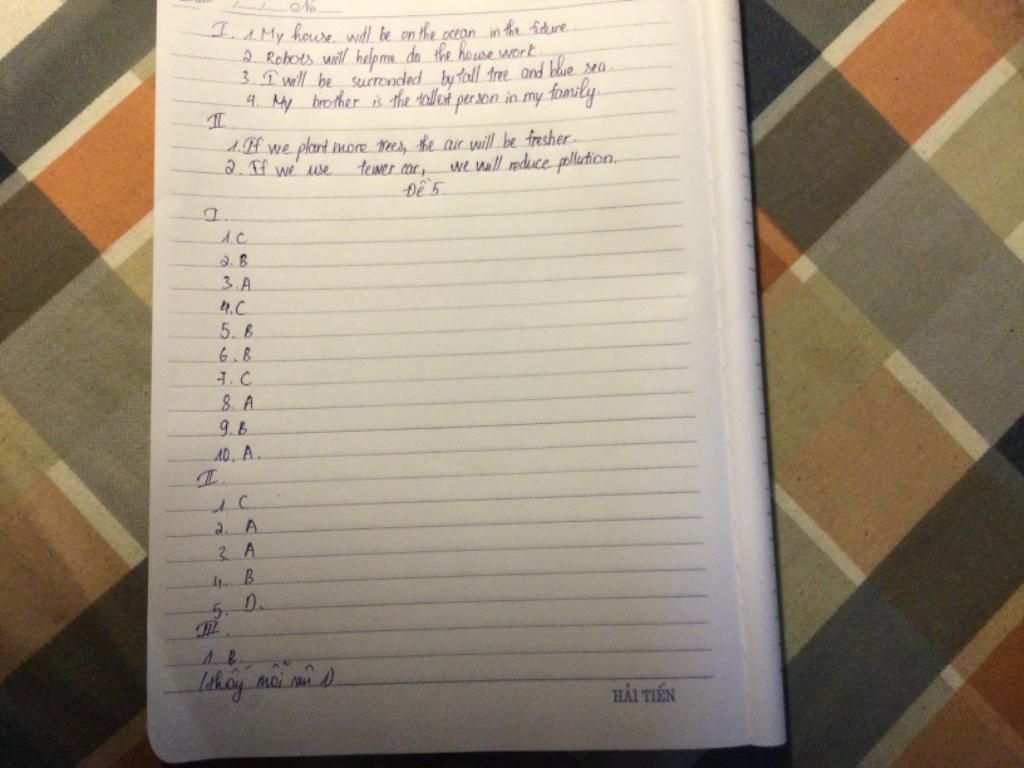 No
I. 1. My house will be on the ocean in the future.
2. Robots will help me do the house work.
3. I will be surronded by tall tree and blue sea.
4. My brother is the tallest person in my family.
II
1. If we plant more trees, the air will be fresher.
2. If we use fewer car, we will reduce pollution.
Đề 5.
I.
1. C
2. B
3. A
4. C
5. B
6. B
7. C
8. A
9. B
10. A.
II.
1. C
2. A
3. A
4. B
5. D.
III.
1. B.
(thấy mỗi câu 1)
HẢI TIẾN